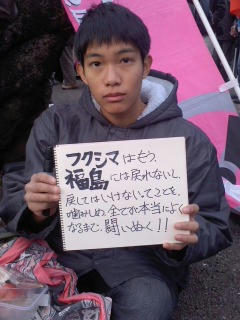 フクシマはもう、
福島には戻れないし、
戻してはいけないってことを、
噛みしめ、全てが本当によく
なるまで、闘いぬく！！